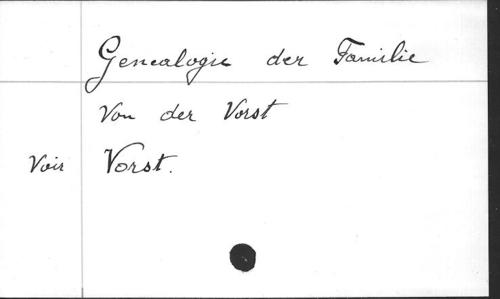 Genealogie der Familie
Von der Vorst
Voir Vorst.